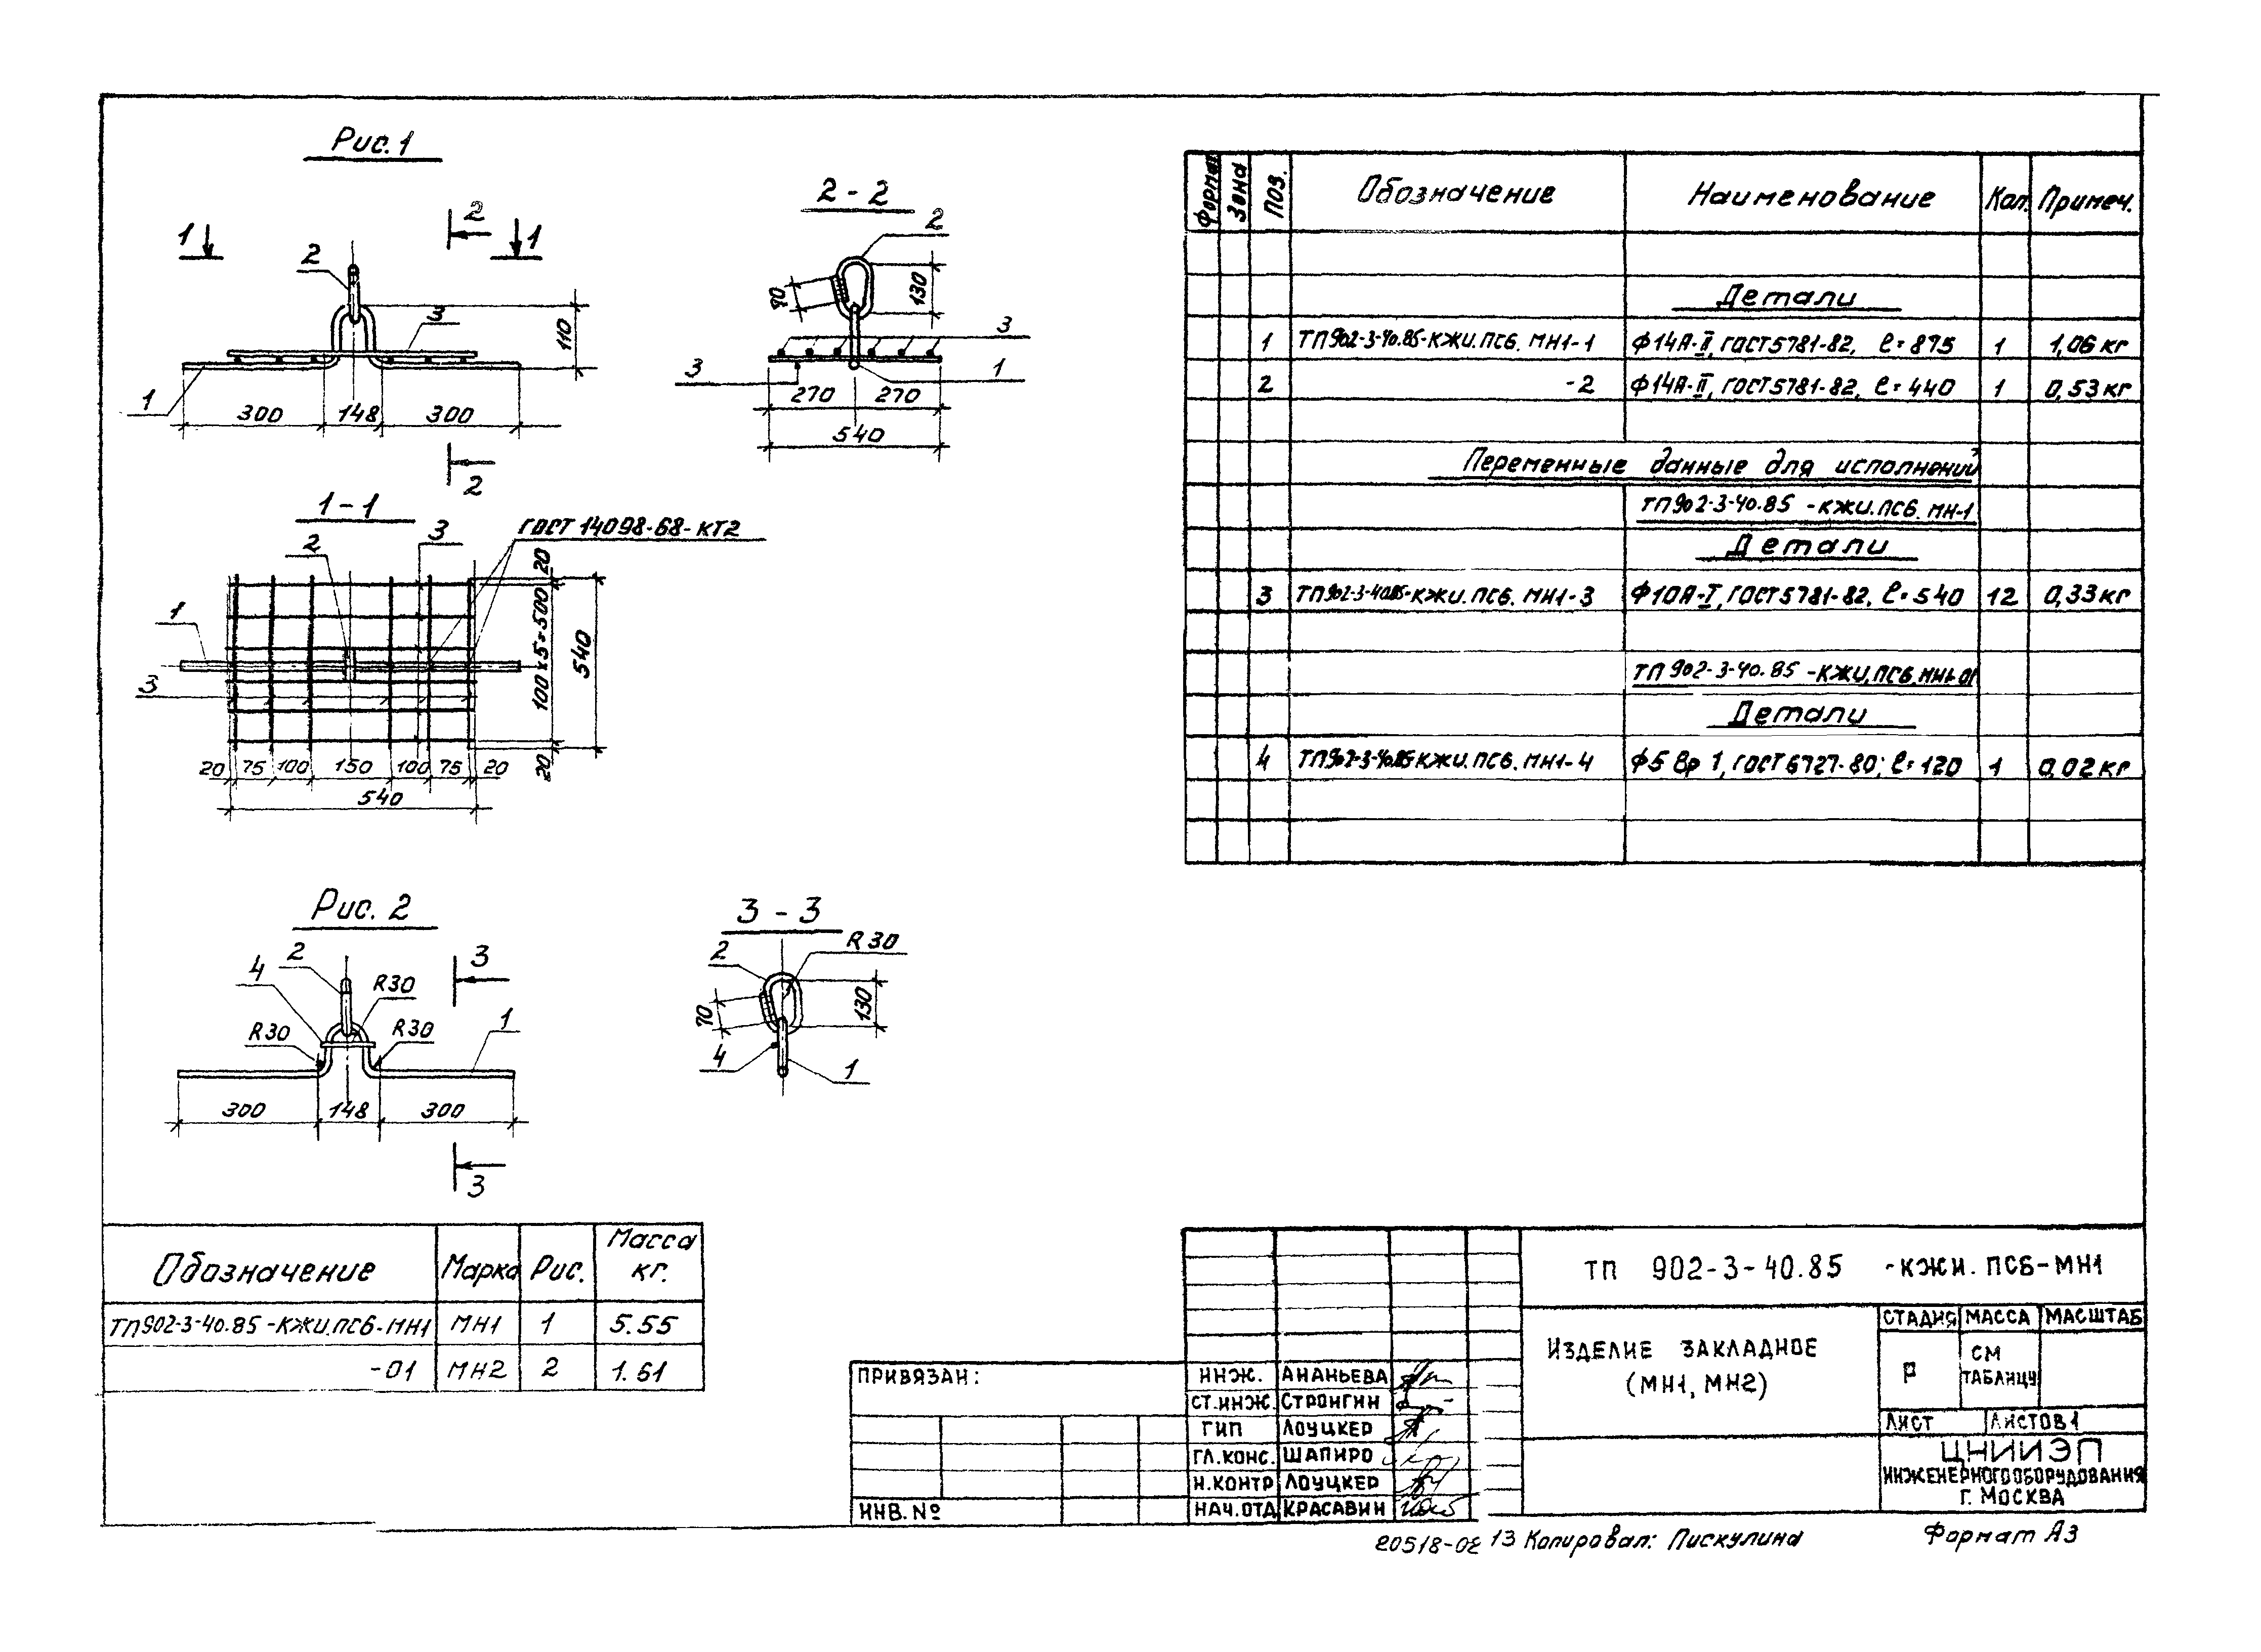 Рис.1
2
1
1
2
3
110
1
300
148
300
2
2 - 2
2
70
130
3
3
1
270
270
540
1-1
ГОСТ 14098-68-КТ2
2
3
20
1
100 х 5 = 500
540
3
20
20
75
100
150
100
75
20
540
Рис. 2
3
2
4
R30
R30
R30
1
300
148
300
3
3 - 3
R30
2
70
130
4
1
Формат
Зона
Поз.
Обозначение
Наименование
Кол.
Примеч.
Детали
1 ТП902-3-40.85-КЖИ.ПС6. МН1-1 Ф14А-II, ГОСТ5781-82, ℓ=875 1 1,06 кг
2 -2 Ф14А-II, ГОСТ5781-82, ℓ=440 1 0,53 кг
Переменные данные для исполнений
ТП902-3-40.85 -КЖИ.ПС6. МН-1
Детали
3 ТП902-3-40.85-КЖИ.ПС6. МН1-3 Ф10А-I, ГОСТ5781-82, ℓ=540 12 0,33 кг
ТП 902-3-40.85 -КЖИ.ПС6.МН1-01
Детали
4 ТП902-3-40.85-КЖИ.ПС6. МН1-4 Ф5 Вр 1, ГОСТ 6727-80; ℓ=120 1 0,02 кг
Обозначение Марка Рис. Масса кг.
ТП902-3-40.85-КЖИ.ПС6-МН1 МН1 1 5.55
-01 МН2 2 1.61
ПРИВЯЗАН:
ИНВ. №
ИНЖ. АНАНЬЕВА
СТ.ИНЖ. СТРОНГИН
ГИП ЛОУЦКЕР
ГЛ.КОНС. ШАПИРО
Н.КОНТР ЛОУЦКЕР
НАЧ.ОТД КРАСАВИН
ТП 902-3-40.85 -КЖИ. ПС6-МН1
ИЗДЕЛИЕ ЗАКЛАДНОЕ
(МН1, МН2)
СТАДИЯ МАССА МАСШТАБ
Р
СМ
ТАБЛИЦУ
ЛИСТ
ЛИСТОВ 1
ЦНИИЭП
ИНЖЕНЕРНОГО ОБОРУДОВАНИЯ
Г. МОСКВА
20518-02 13 Копировал: Пискулина Формат А3